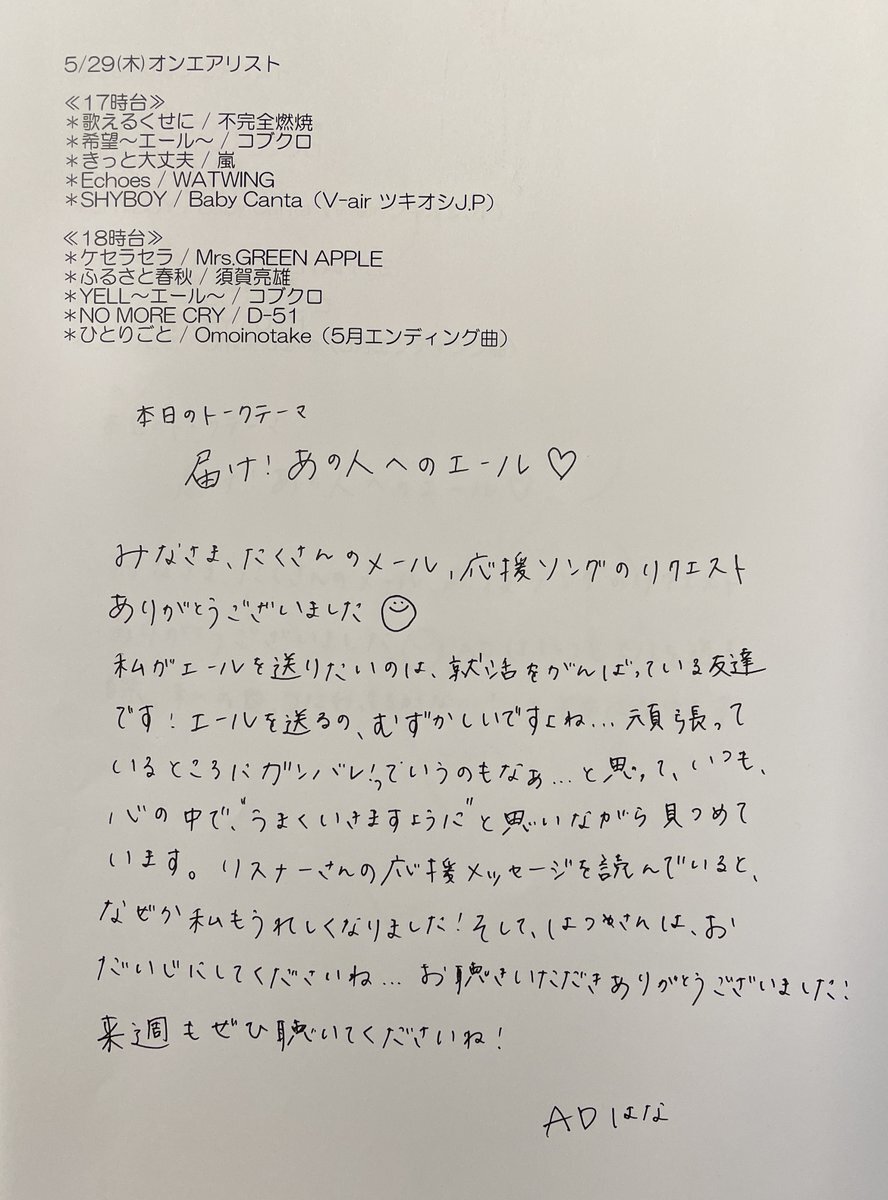 5/29(木)オンエアリスト
≪17時台≫
＊歌えるくせに / 不完全燃焼
＊希望～エール～ / コブクロ
＊きっと大丈夫 / 嵐
＊Echoes / WATWING
＊SHYBOY / Baby Canta（V-air ツキオシJ.P）
≪18時台≫
＊ケセラセラ / Mrs.GREEN APPLE
＊ふるさと春秋 / 須賀亮雄
＊YELL～エール～ / コブクロ
＊NO MORE CRY / D-51
＊ひとりごと / Omoinotake（5月エンディング曲）
本日のトークテーマ
届け！あの人へのエール♡
みなさま、たくさんのメール、応援ソングのリクエスト
ありがとうございました☺
私がエールを送りたいのは、就活をがんばっている友達
です！エールを送るの、むずかしいですよね…頑張って
いるところにガンバレ！っていうのもなぁ…と思って、いつも、
心の中で、“うまくいきますように”と思いながら見つめて
います。リスナーさんの応援メッセージを読んでいると、
なぜか私もうれしくなりました！そして、はつめさんは、お
だいじにしてくださいね…お聴きいただきありがとうございました！
来週もぜひ聴いてくださいね！
ADはな